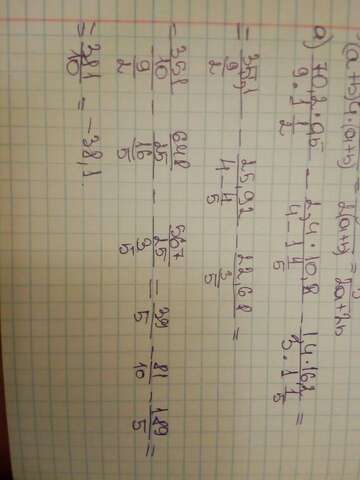 a) 70,2 · 0,5 / 9 · 1 1/2 − 2,4 · 10,8 / 4 − 4/5 − 14 · 1,62 / 3 · 1/5 =
= 35,1 / 9/2 − 25,92 / 4 − 4/5 − 22,68 / 3/5 =
= 351/10 / 9/2 − 648/25 / 16/5 − 567/25 / 3/5 = 39/5 − 81/10 − 189/5 =
= 381/10 = −38,1.